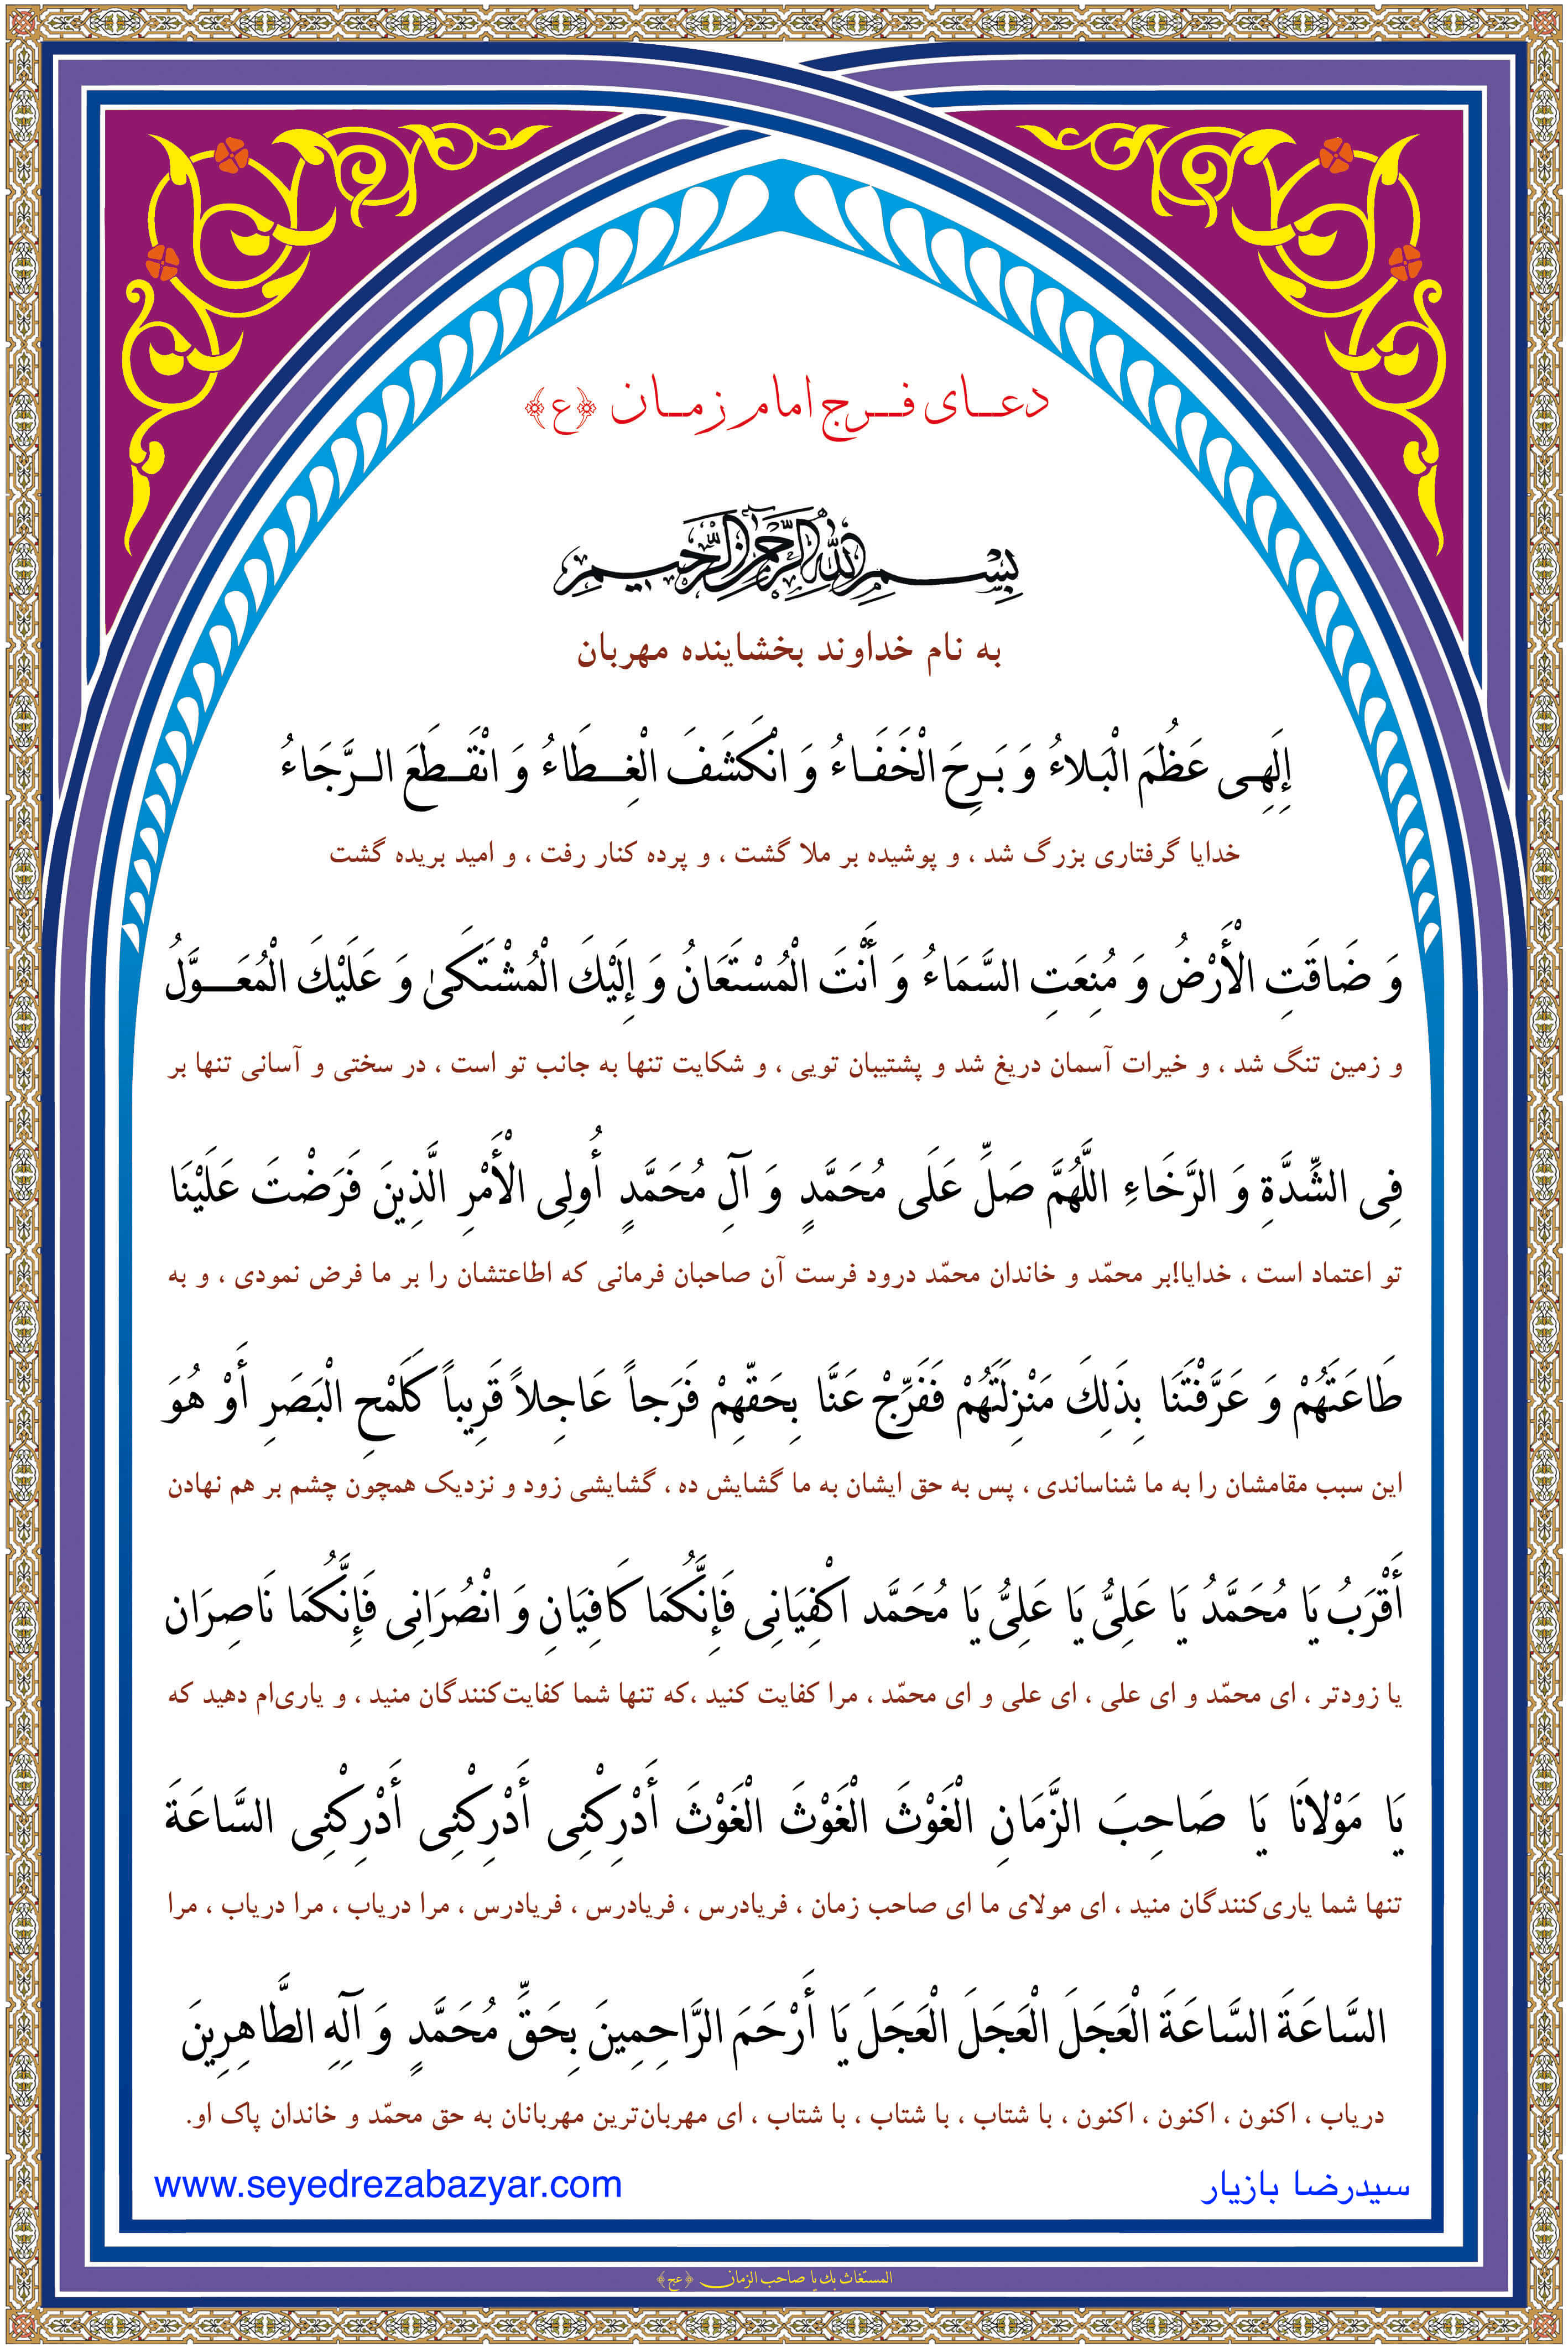 دعای فرج امام زمان ﴿ع﴾
بِسْمِ اللهِ الرَّحْمٰنِ الرَّحِيمِ
به نام خداوند بخشاینده مهربان
إِلَهِی عَظُمَ الْبَلاءُ وَ بَرِحَ الْخَفَاءُ وَ انْكَشَفَ الْغِطَاءُ وَ انْقَطَعَ الرَّجَاءُ
خدایا گرفتاری بزرگ شد ، و پوشیده بر ملا گشت ، و پرده کنار رفت ، و امید بریده گشت
وَ ضَاقَتِ الْأَرْضُ وَ مُنِعَتِ السَّمَاءُ وَ أَنْتَ الْمُسْتَعَانُ وَ إِلَیْكَ الْمُشْتَكَیٰ وَ عَلَیْكَ الْمُعَوَّلُ
و زمین تنگ شد ، و خیرات آسمان دریغ شد و پشتیبان تویی ، و شکایت تنها به جانب تو است ، در سختی و آسانی تنها بر
فِی الشِّدَّةِ وَ الرَّخَاءِ اللَّهُمَّ صَلِّ عَلَی مُحَمَّدٍ وَ آلِ مُحَمَّدٍ أُولِی الْأَمْرِ الَّذِینَ فَرَضْتَ عَلَیْنَا
تو اعتماد است ، خدایا!بر محمّد و خاندان محمّد درود فرست آن صاحبان فرمانی که اطاعتشان را بر ما فرض نمودی ، و به
طَاعَتَهُمْ وَ عَرَّفْتَنَا بِذَلِكَ مَنْزِلَتَهُمْ فَفَرِّجْ عَنَّا بِحَقِّهِمْ فَرَجاً عَاجِلاً قَرِیباً كَلَمْحِ الْبَصَرِ أَوْ هُوَ
این سبب مقامشان را به ما شناساندی ، پس به حق ایشان به ما گشایش ده ، گشایشی زود و نزدیک همچون چشم بر هم نهادن
أَقْرَبُ یَا مُحَمَّدُ یَا عَلِیُّ یَا عَلِیُّ یَا مُحَمَّد اكْفِیَانِی فَإِنَّكُمَا كَافِیَانِ وَ انْصُرَانِی فَإِنَّكُمَا نَاصِرَان
یا زودتر ، ای محمّد و ای علی ، ای علی و ای محمّد ، مرا کفایت کنید ،که تنها شما کفایت‌کنندگان منید ، و یاری‌ام دهید که
یَا مَوْلانَا یَا صَاحِبَ الزَّمَانِ الْغَوْثَ الْغَوْثَ الْغَوْثَ أَدْرِكْنِی أَدْرِكْنِی أَدْرِكْنِی السَّاعَةَ
تنها شما یاری‌کنندگان منید ، ای مولای ما ای صاحب زمان ، فریادرس ، فریادرس ، فریادرس ، مرا دریاب ، مرا دریاب ، مرا
السَّاعَةَ السَّاعَةَ الْعَجَلَ الْعَجَلَ الْعَجَلَ یَا أَرْحَمَ الرَّاحِمِینَ بِحَقِّ مُحَمَّدٍ وَ آلِهِ الطَّاهِرِینَ
دریاب ، اکنون ، اکنون ، اکنون ، با شتاب ، با شتاب ، با شتاب ، ای مهربان‌ترین مهربانان به حق محمّد و خاندان پاک او.
سیدرضا بازیار
www.seyedrezabazyar.com
المستغاث بك یا صاحب الزمان ﴿عج﴾